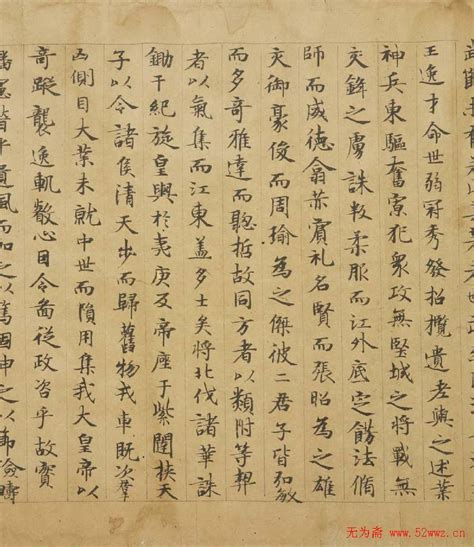 王逸才命世弱冠秀發招攬遺老與之述業
神兵東驅奮寡犯衆攻無堅城之將戰無
交鋒之虜誅叛柔服而江外底定飭法脩
師而威德翕赫賓礼名賢而張昭為之雄
交御豪俊而周瑜為之傑彼二君子皆弘敏
而多奇雅達而聰哲故同方者以類附等契
者以氣集而江東盖多士矣將北伐諸華誅
鋤干紀旋皇輿於夷庚反帝座于紫闥挾天
子以令諸侯清天步而歸舊物戎車既次羣
凶側目大業未就中世而隕用集我大皇帝以
奇蹤襲逸軌叡心因令啚從政咨乎故實
播憲稽乎遺風而加之以篤固申之以節儉疇
无为斋·www.52wwz.cn